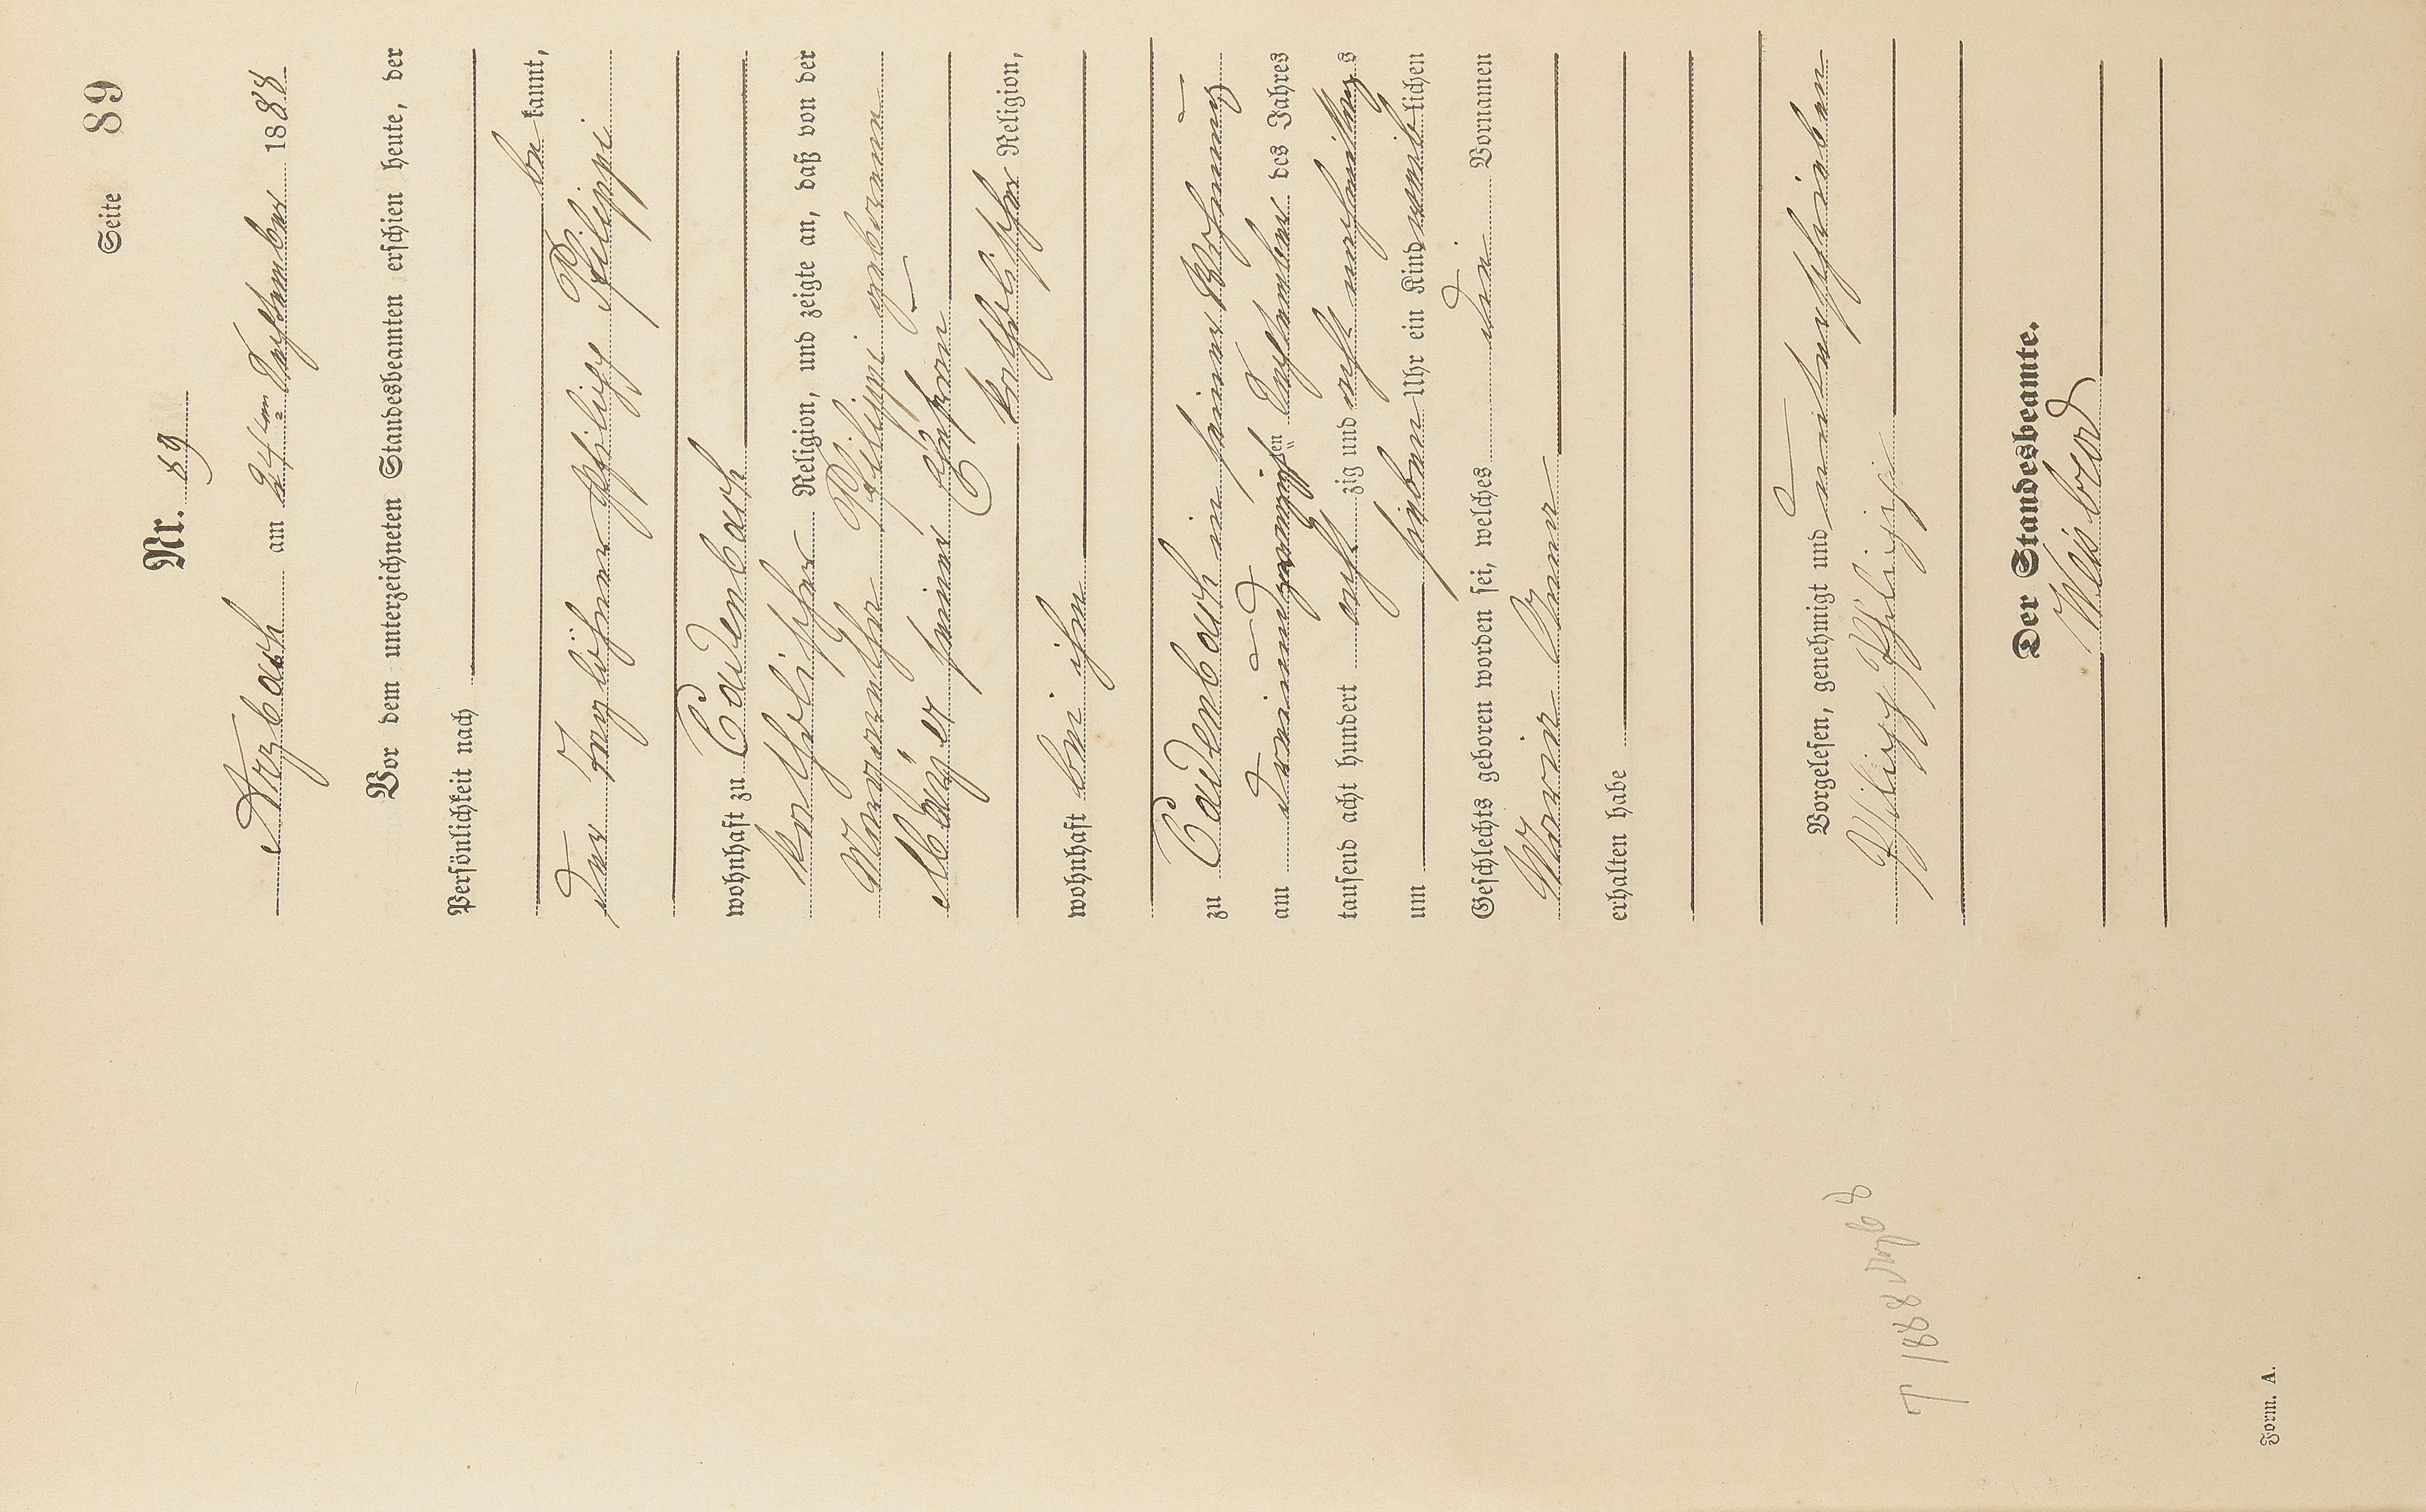 Seite 89
Nr. 89
Arzbach am 24ten September 1888
Vor dem unterzeichneten Standesbeamten erschien heute, der
Persönlichkeit nach
be kannt,
der Taglöhner Philipp Philippi
wohnhaft zu Cadenbach
katholischer Religion, und zeigte an, daß von der
Margarethe Philippi geborenen
seiner Ehefrau
katholischer Religion,
wohnhaft bei ihm
zu Cadenbach in seiner Wohnung
am dreiundzwanzigsten September des Jahres
tausend acht hundert acht zig und acht nachmittags
um sieben Uhr ein Kind weiblichen
Geschlechts geboren worden sei, welches den Vornamen
Maria Anna
erhalten habe
Vorgelesen, genehmigt und unterschrieben
Philipp Philippi
Der Standesbeamte.
Form. A.